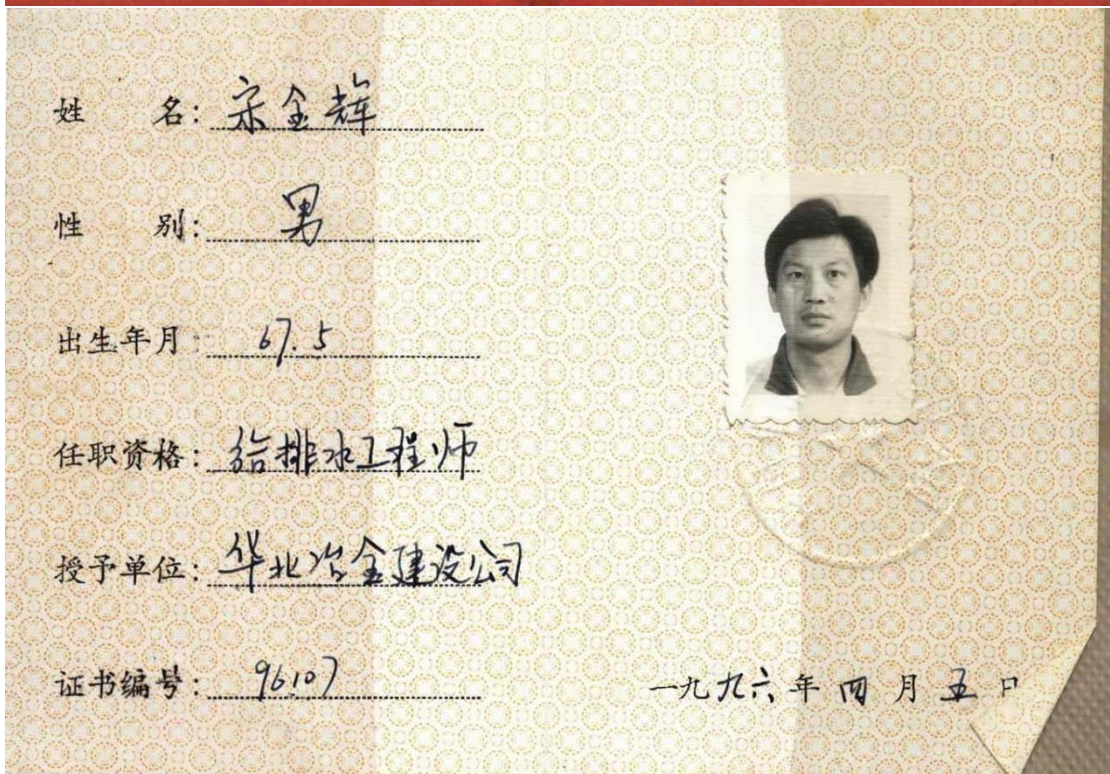 姓 名: 宋金辉
性 别: 男
出生年月: 67.5
任职资格: 给排水工程师
授予单位: 华北冶金建设公司
证书编号: 96107
一九九六年四月五日